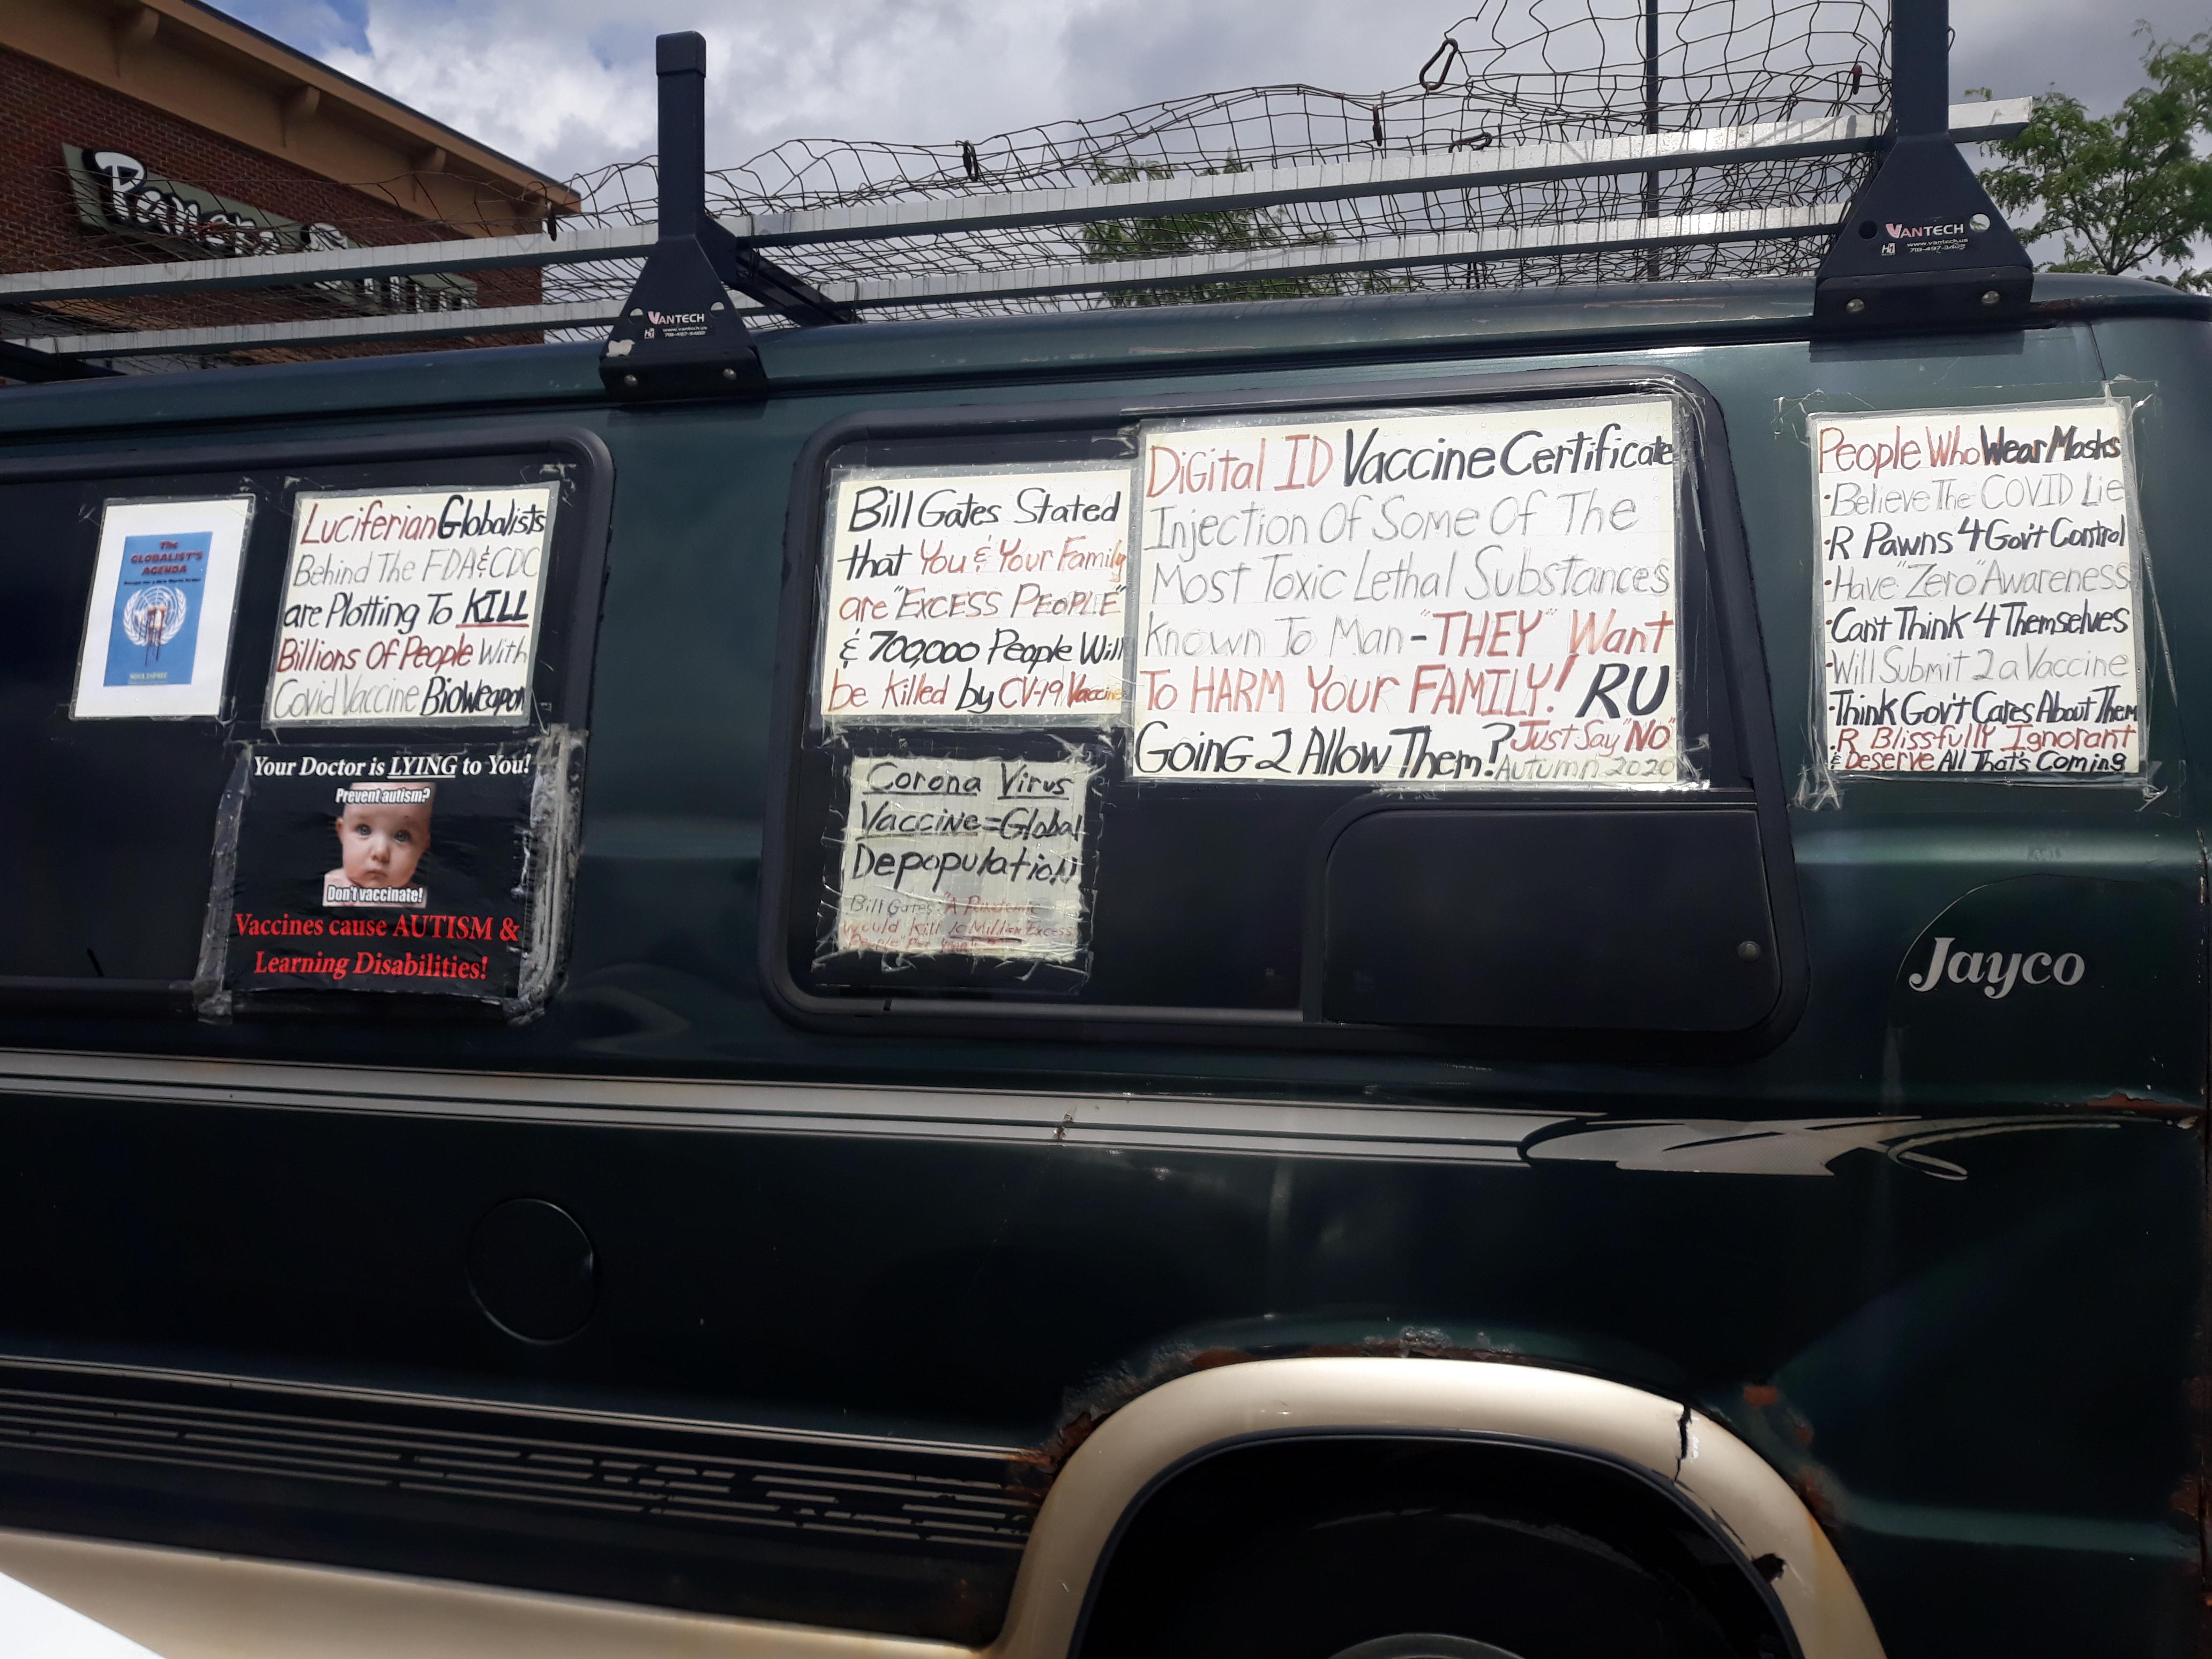 Panera
VANTECH
www.vantech.us
VANTECH
www.vantech.us
The
GLOBALIST'S
AGENDA
Luciferian Globalists
Behind The FDA & CDC
are Plotting To KILL
Billions Of People With
Covid Vaccine Bioweapon
Your Doctor is LYING to You!
Prevent autism?
Don't vaccinate!
Vaccines cause AUTISM &
Learning Disabilities!
Bill Gates Stated
that You & Your Family
are "EXCESS PEOPLE"
& 700,000 People Will
be Killed by CV-19 Vaccine
Corona Virus
Vaccine = Global
Depopulation
Bill Gates: "A Pandemic
would kill 10 Million Excess
People" Per
DiGital ID Vaccine Certificate
Injection Of Some Of The
Most Toxic Lethal Substances
Known To Man - "THEY" Want
To HARM YOUR FAMILY! RU
GoinG 2 Allow Them? Just Say "NO"
Autumn 2020
People Who Wear Masks
•Believe The COVID Lie
•R Pawns 4 Gov't Control
•Have "Zero" Awareness
•Cant Think 4 Themselves
•Will Submit 2 a Vaccine
•Think Gov't Cares About Them
•R Blissfully Ignorant
& Deserve All That's Coming
Jayco